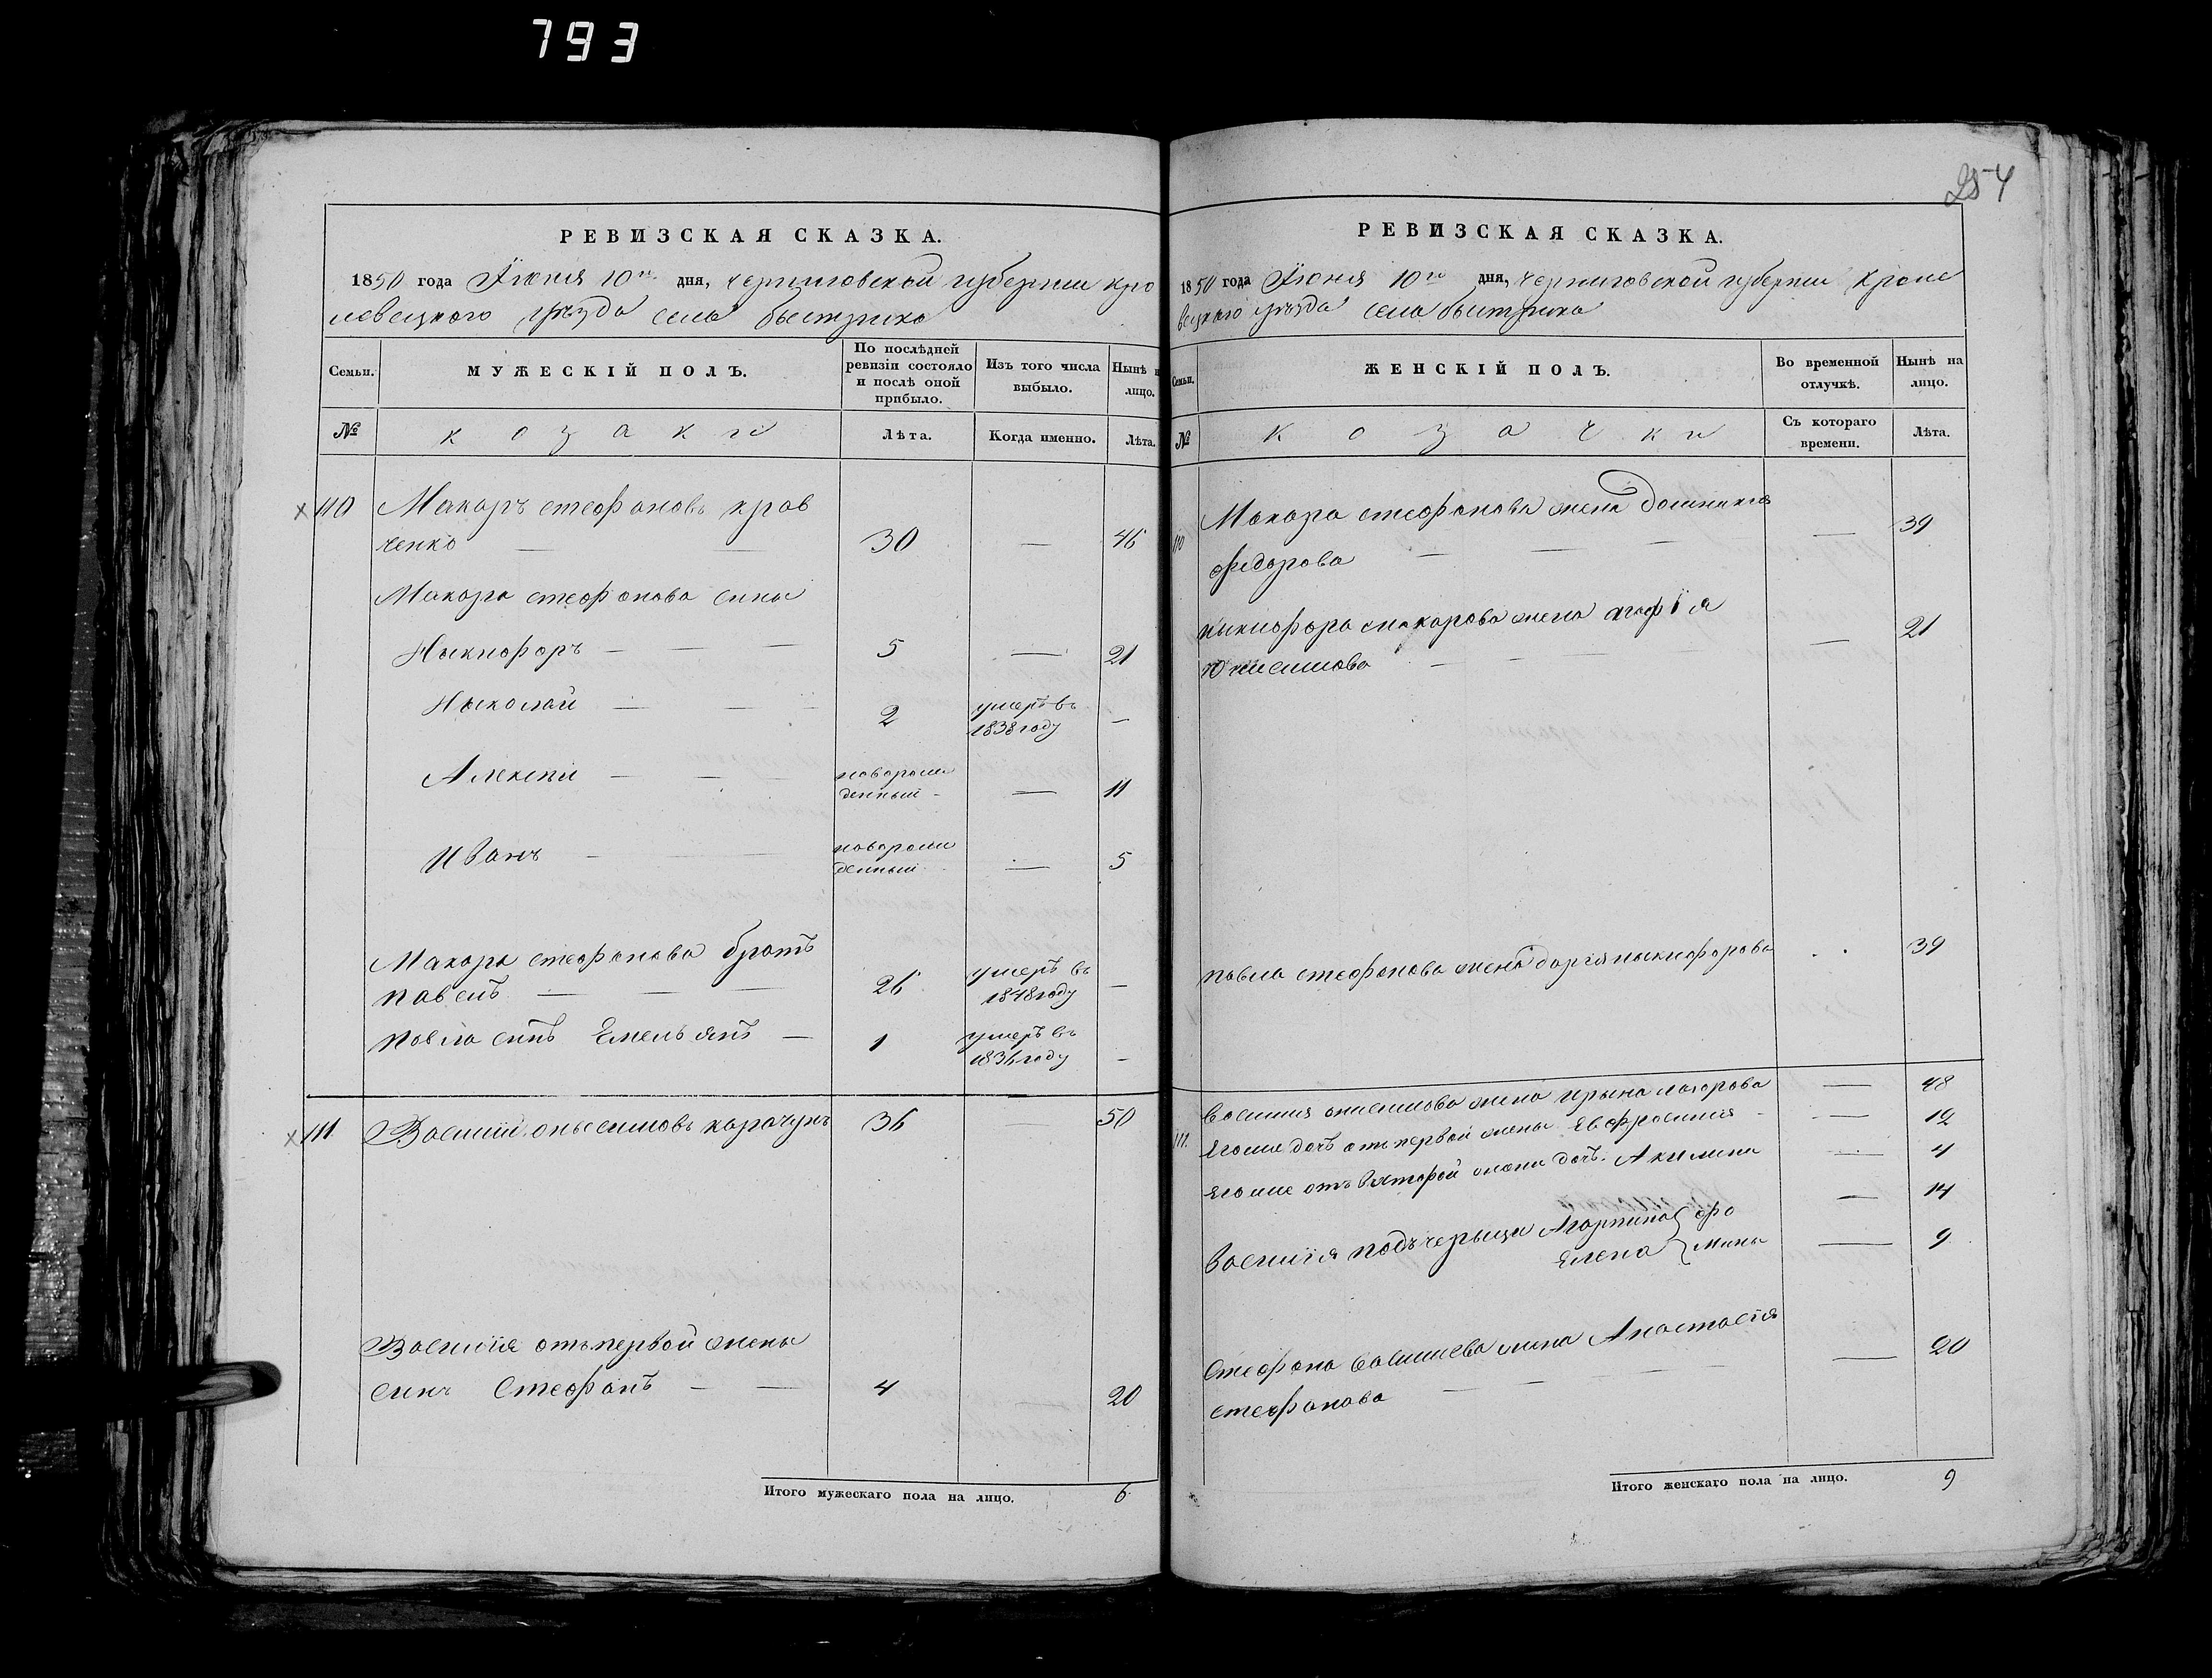 793
РЕВИЗСКАЯ СКАЗКА.
1850 года Іюня 10го дня, черниговской губернии кро
левецкого уѣзда села быстрика
Семьи. МУЖЕСКІЙ ПОЛЪ. По послѣдней ревизіи состояло и послѣ оной прибыло. Изъ того числа выбыло. Нынѣ н лицо.
№ козаки Лѣта. Когда именно. Лѣта.
х 110 Макаръ стеофановъ крав
ченко — — 30 — 46
Макара стеофанова сины
Ныкиофоръ — — — 5 — 21
Ныколай — — — 2 умеръ въ
1838 году —
Алексѣй — — — новорож
денный — — 11
Иванъ — — новорож
денный — 5
Макара стеофанова братъ
павелъ — — — 26 умеръ въ
1848 году —
павла синъ Емельянъ — 1 умеръ въ
1836 году —
х 111 Василий оныссимовъ карачунъ 36 50
Василия отъ первой жены
синъ Стеофанъ — — 4 — 20
Итого мужескаго пола на лицо. 6
254
РЕВИЗСКАЯ СКАЗКА.
1850 года Іюня 10го дня, черниговской губернии кроле
вецкаго уѣзда села быстрика
Семьи. ЖЕНСКІЙ ПОЛЪ. Во временной отлучкѣ. Нынѣ на лицо.
№ козачки Съ котораго времени. Лѣта.
110 Макара стеофанова жена Домникия
федорова — — — — 39
ныкиофора макарова жена агафія
— — — — — 21
павла стеофанова жена дария ныкиофорова . . 39
111. василия онисимова жена ирына лазарова — 48
Егоже дочь отъ первой жены Евфросиния — 12
Егоже отъ вяторой жены дочь Акилина — 4
Василія подъчерыци Агарпина } фо — 14
Елена } мины — 9
Стеофана василиева жена Анастасія
стеофанова — — — — — 20
Итого женскаго пола на лицо. 9